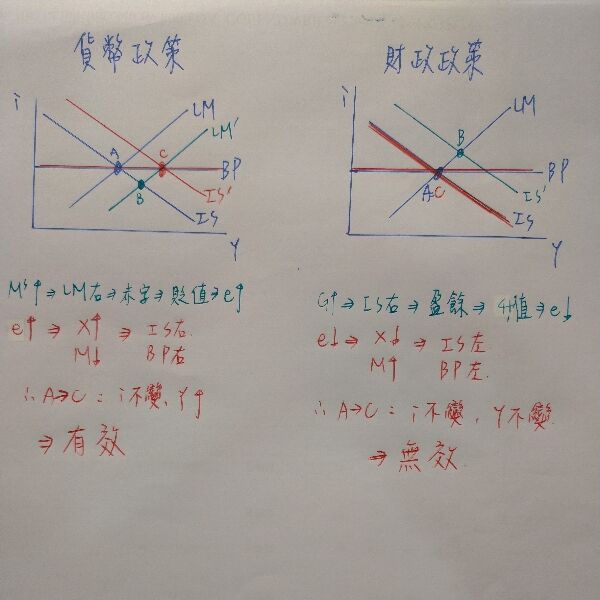 貨幣政策
i
LM
LM'
A
C
BP
B
IS'
IS
Y
Mˢ↑⇒LM右⇒赤字⇒貶值⇒e↑
e↑ ⇒ X↑ ⇒ IS右
M↓ BP右
∴A⇒C：i不變、Y↑
⇒有效
財政政策
i
LM
B
BP
A.C
IS'
IS
Y
G↑⇒IS右⇒盈餘⇒升值⇒e↓
e↓ ⇒ X↓ ⇒ IS左
M↑ BP左
∴A⇒C：i不變、Y不變
⇒無效